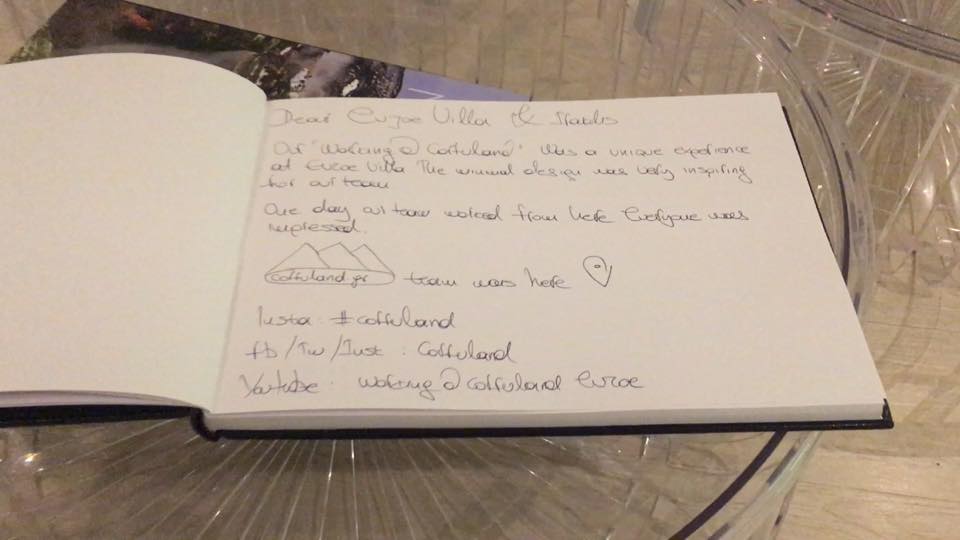 Dear Evzoe Villa &
Our "Working@Corfuland" was a unique experience
at Evzoe Villa The minimal design was very inspiring
for our team
One day our team worked from here Everyone was
impressed.
corfuland.gr team was here
Insta: #corfuland
fb/Tw/Inst : Corfuland
Youtube: Working@corfuland Evzoe